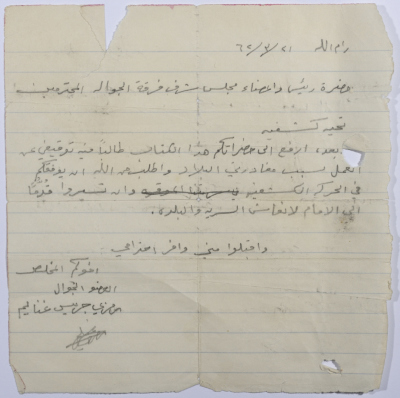 رام الله ٢١/٣/٦٢
حضرة رئيس واعضاء مجلس شرف فرقة الجواله المحترمين
تحيه كشفيه
وبعد، ارفع الى حضراتكم هذا الكتاب طالبا فيه توقيفي عن
العمل بسبب مغادرتي البلاد واطلب من الله ان يوفقكم
في الحركة الكشفيه وان تسيروا قدما
الى الامام لانعاش السريه والبلدي.
واقبلوا مني وافر احترامي
اخوكم المخلص
العضو الجوال
رمزي جريس غنايم